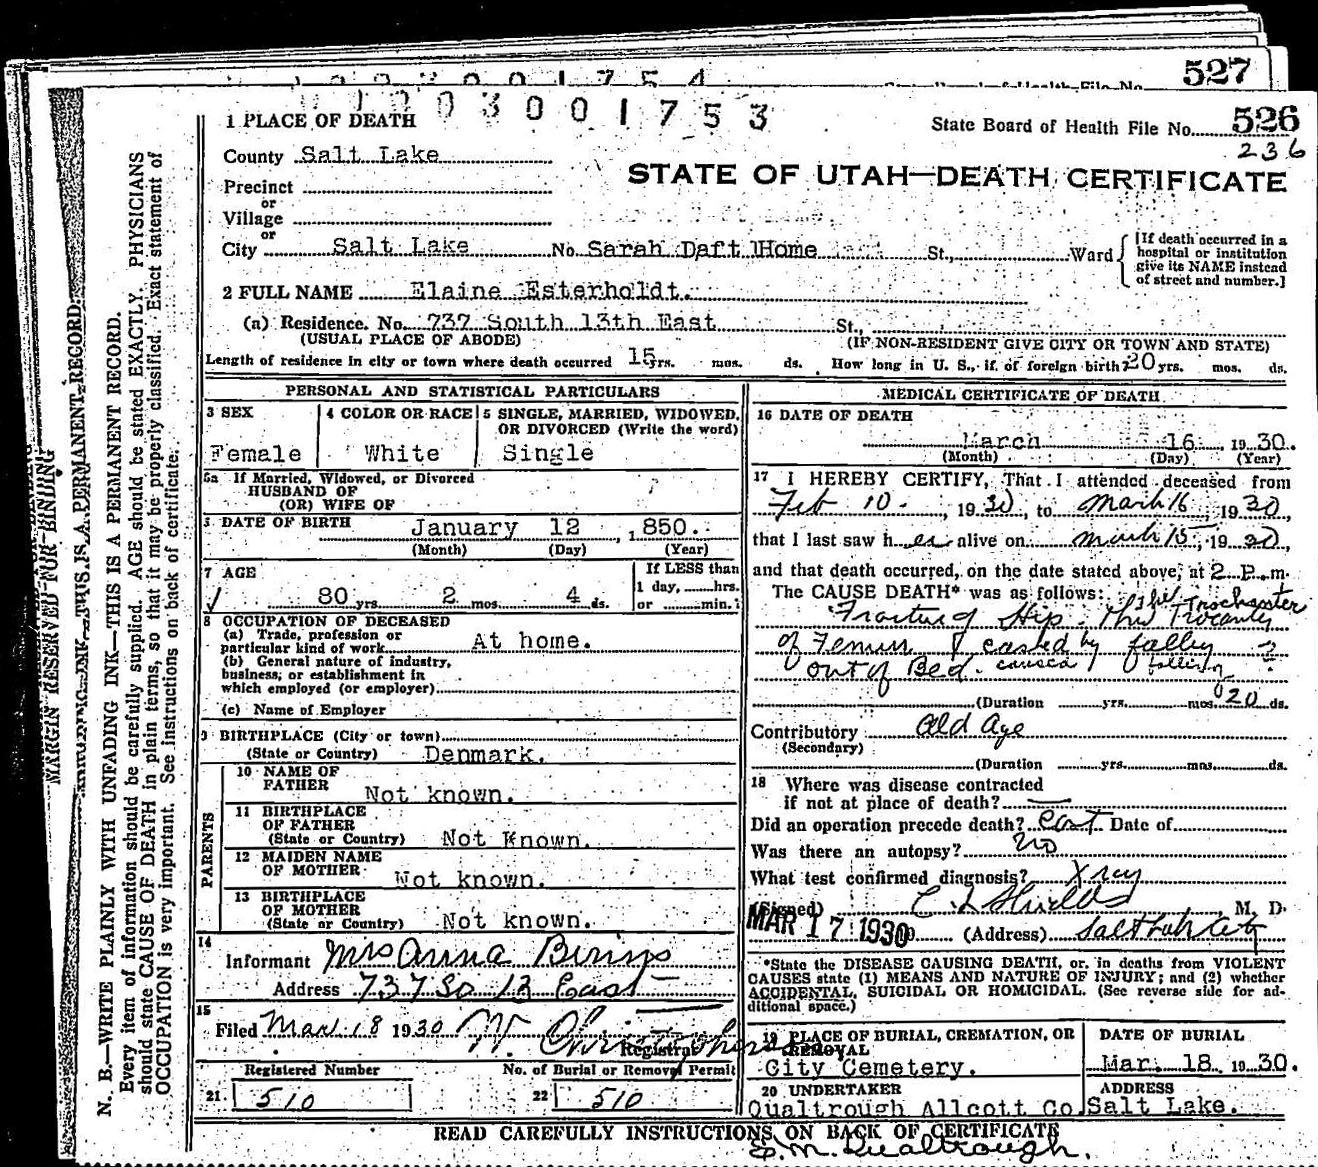 527
1003001753
1 PLACE OF DEATH
State Board of Health File No. 526
236
County Salt Lake
STATE OF UTAH—DEATH CERTIFICATE
Precinct
or
Village
or
City Salt Lake No. Sarah Daft Home St., Ward
[If death occurred in a hospital or institution give its NAME instead of street and number.]
2 FULL NAME Elaine Esterholdt.
(a) Residence. No. 737 South 13th East St.,
(USUAL PLACE OF ABODE) (IF NON-RESIDENT GIVE CITY OR TOWN AND STATE)
Length of residence in city or town where death occurred 15 yrs. mos. ds. How long in U. S., if of foreign birth? 20 yrs. mos. ds.
PERSONAL AND STATISTICAL PARTICULARS
3 SEX 4 COLOR OR RACE 5 SINGLE, MARRIED, WIDOWED, OR DIVORCED (Write the word)
Female White Single
5a If Married, Widowed, or Divorced
HUSBAND OF
(OR) WIFE OF
DATE OF BIRTH January 12, 1850.
(Month) (Day) (Year)
7 AGE If LESS than
1 day, hrs.
80 yrs. 2 mos. 4 ds. or min.?
8 OCCUPATION OF DECEASED
(a) Trade, profession or
particular kind of work At home.
(b) General nature of industry,
business, or establishment in
which employed (or employer)
(c) Name of Employer
9 BIRTHPLACE (City or town)
(State or Country) Denmark.
PARENTS
10 NAME OF
FATHER Not known.
11 BIRTHPLACE
OF FATHER
(State or Country) Not Known.
12 MAIDEN NAME
OF MOTHER Not known.
13 BIRTHPLACE
OF MOTHER
(State or Country) Not known.
14
Informant Mrs Anna
Address 737 So 13 East
15
Filed Mar 18 1930 W.
Registrar
Registered Number No. of Burial or Removal Permit
21 510 22 510
MEDICAL CERTIFICATE OF DEATH
16 DATE OF DEATH
March 16, 1930.
(Month) (Day) (Year)
17 I HEREBY CERTIFY, That I attended deceased from
Feb 10, 1930, to March 16, 1930,
that I last saw her alive on March 15, 1930,
and that death occurred, on the date stated above, at 2 P.m.
The CAUSE DEATH* was as follows:
the Trochanter
Fracture of Hip. Thru Trocanter
of Femur caused by falling ?
out of Bed. caused falling
(Duration yrs. mos. 20 ds.
Contributory Old Age
(Secondary)
(Duration yrs. mos. ds.
18 Where was disease contracted
if not at place of death? —
Did an operation precede death? cast Date of
Was there an autopsy? no
What test confirmed diagnosis? X ray
(Signed) C L Shields M. D.
MAR 17 1930 (Address) Salt Lake City
*State the DISEASE CAUSING DEATH, or, in deaths from VIOLENT
CAUSES state (1) MEANS AND NATURE OF INJURY; and (2) whether
ACCIDENTAL, SUICIDAL OR HOMICIDAL. (See reverse side for ad-
ditional space.)
19 PLACE OF BURIAL, CREMATION, OR REMOVAL DATE OF BURIAL
City Cemetery. Mar. 18 1930.
20 UNDERTAKER ADDRESS
Qualtrough Allcott Co. Salt Lake.
READ CAREFULLY INSTRUCTIONS ON BACK OF CERTIFICATE
S.M. Qualtrough.
MARGIN RESERVED FOR BINDING
THIS IS A PERMANENT RECORD.
N. B.—WRITE PLAINLY WITH UNFADING INK—THIS IS A PERMANENT RECORD.
Every item of information should be carefully supplied. AGE should be stated EXACTLY. PHYSICIANS
should state CAUSE OF DEATH in plain terms, so that it may be properly classified. Exact statement of
OCCUPATION is very important. See instructions on back of certificate.